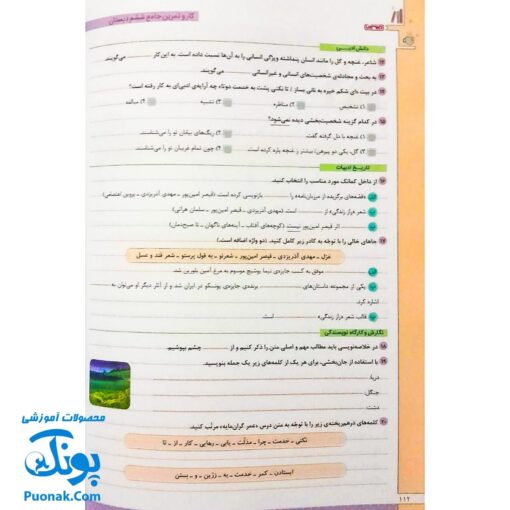 کار و تمرین جامع ششم دبستان
دانش ادبــی
۱۲ شاعر، غنچه و گل را مانند انسان پنداشته ویژگی انسانی را به آن‌ها نسبت داده است. به این کار می‌گویند.
۱۳ به بحث و مجادله‌ی شخصیت‌های انسانی و غیرانسانی می‌گویند.
۱۴ در بیت «ای شکم خیره به نانی بساز / تا نکنی پشت به خدمت دوتا» چه آرایه‌ی ادبی‌ای به کار رفته است؟
۱) تشخیص ۲) مناظره ۳) تشبیه ۴) مبالغه
۱۵ در کدام گزینه شخصیت‌بخشی دیده نمی‌شود؟
۱) غنچه با دل گرفته گفت. ۲) ریگ‌های بیابان تو را می‌شناسند.
۳) گل، یکی دو پیرهن/ بیشتر ز غنچه پاره کرده است. ۴) چون تمام غریبان تو را می‌شناسند.
تاریـخ ادبیات
۱۶ از داخل کمانک مورد مناسب را انتخاب کنید.
الف «قصه‌های برگزیده از مرزبان‌نامه» را بازنویسی کرده است. (قیصر امین‌پور ـ مهدی آذریزدی ـ پروین اعتصامی)
ب شعر «راز زندگی» از است. (مهدی آذریزدی ـ قیصر امین‌پور ـ سلمان هراتی)
پ اثر قیصر امین‌پور نیست. (کوچه‌های آفتاب ـ آینه‌های ناگهان ـ تا صبح‌دمان)
۱۷ جاهای خالی را با توجّه به کادر زیر کامل کنید. (دو واژه اضافه است.)
غزل ـ مهدی آذریزدی ـ قیصر امین‌پور ـ شعر نو ـ به قول پرستو ـ شعر قند و عسل
الف موفق به کسب جایزه‌ی نیما یوشیج موسوم به مرغ آمین بلورین شد.
ب یکی از مجموعه داستان‌های برنده‌ی جایزه‌ی یونسکو در ایران شد و از آثار دیگر او می‌توان به
اشاره کرد.
پ قالب شعر «راز زندگی» است.
نگارش و کارگاه نویسندگی
۱۸ در خلاصه‌نویسی باید مطالب مهم و اصلی متن را ذکر کنیم و از چشم بپوشیم.
۱۹ با استفاده از جان‌بخشی، برای هر یک از کلمه‌های زیر یک جمله بنویسید.
دریا:
جنگل:
دشت:
۲۰ کلمه‌های درهم‌ریخته‌ی زیر را با توجّه به متن درس «عمر گران‌مایه» مرتّب کنید.
نکنی ـ خدمت ـ چرا ـ مذلّت ـ یابی ـ رهایی ـ کار ـ از ـ تا
ایستادن ـ کمر ـ خدمت ـ به ـ زرّین ـ و ـ بستن
۱۱۲
محصولات آموزشی
پونک
Puonak.Com